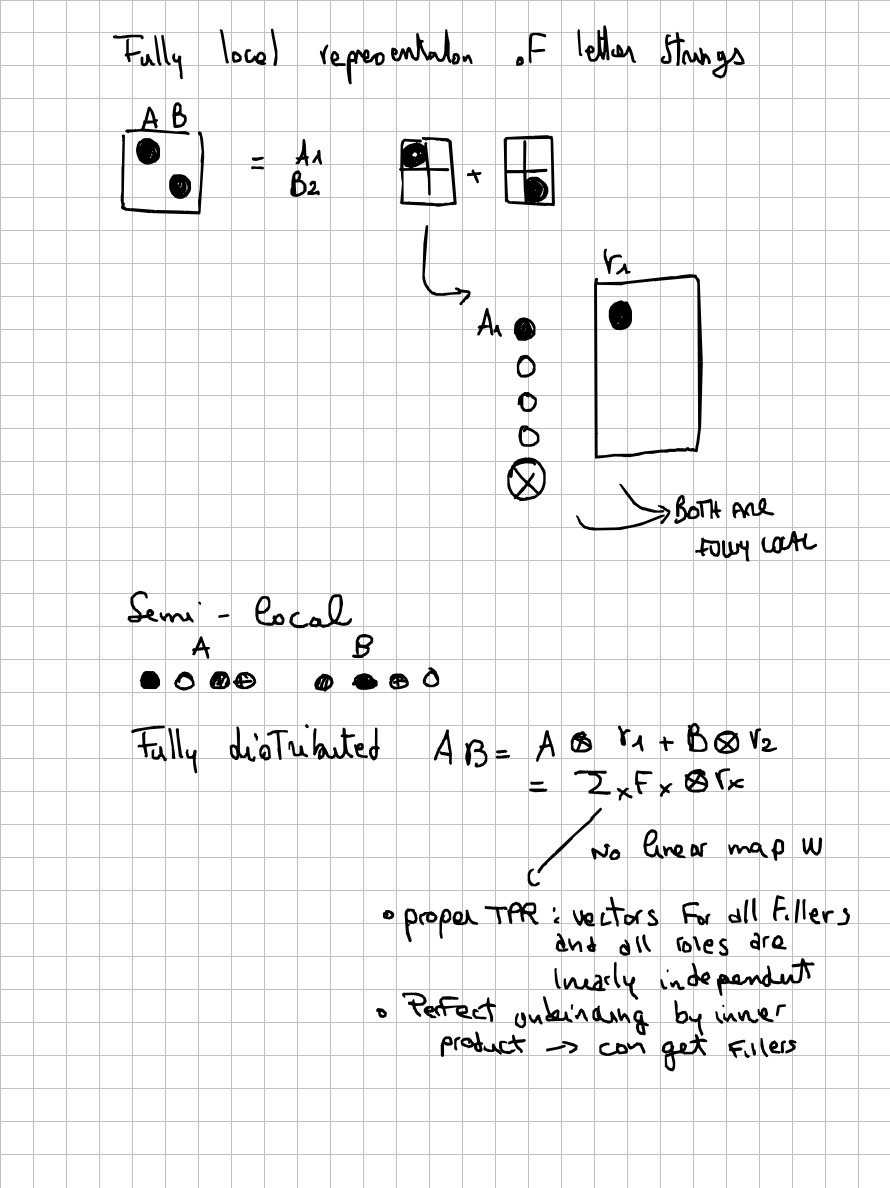 Fully local representation of letter strings
A B
= A1
B2
+
r1
A1
BOTH ARE
FULLY LOCAL
Semi - local
A B
Fully distributed AB = A ⊗ r1 + B ⊗ r2
= Σx Fx ⊗ rx
No linear map W
• proper TPR : vectors for all fillers
and all roles are
linearly independent
• Perfect unbinding by inner
product → can get fillers